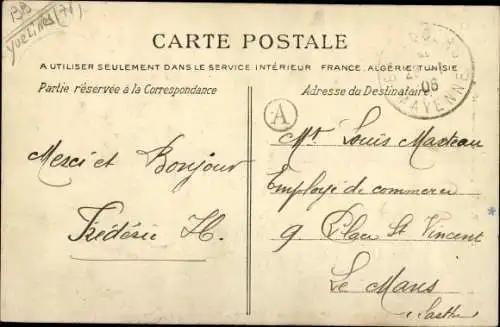 BB
Yvelines (78)
CARTE POSTALE
A UTILISER SEULEMENT DANS LE SERVICE INTÉRIEUR FRANCE, ALGÉRIE, TUNISIE
Partie réservée à la Correspondance
Adresse du Destinataire
06
MAYENNE
A
Merci et Bonjour
Frédéric H.
Mr Louis Marteau
Employé de commerce
9 Place St Vincent
Le Mans
Sarthe